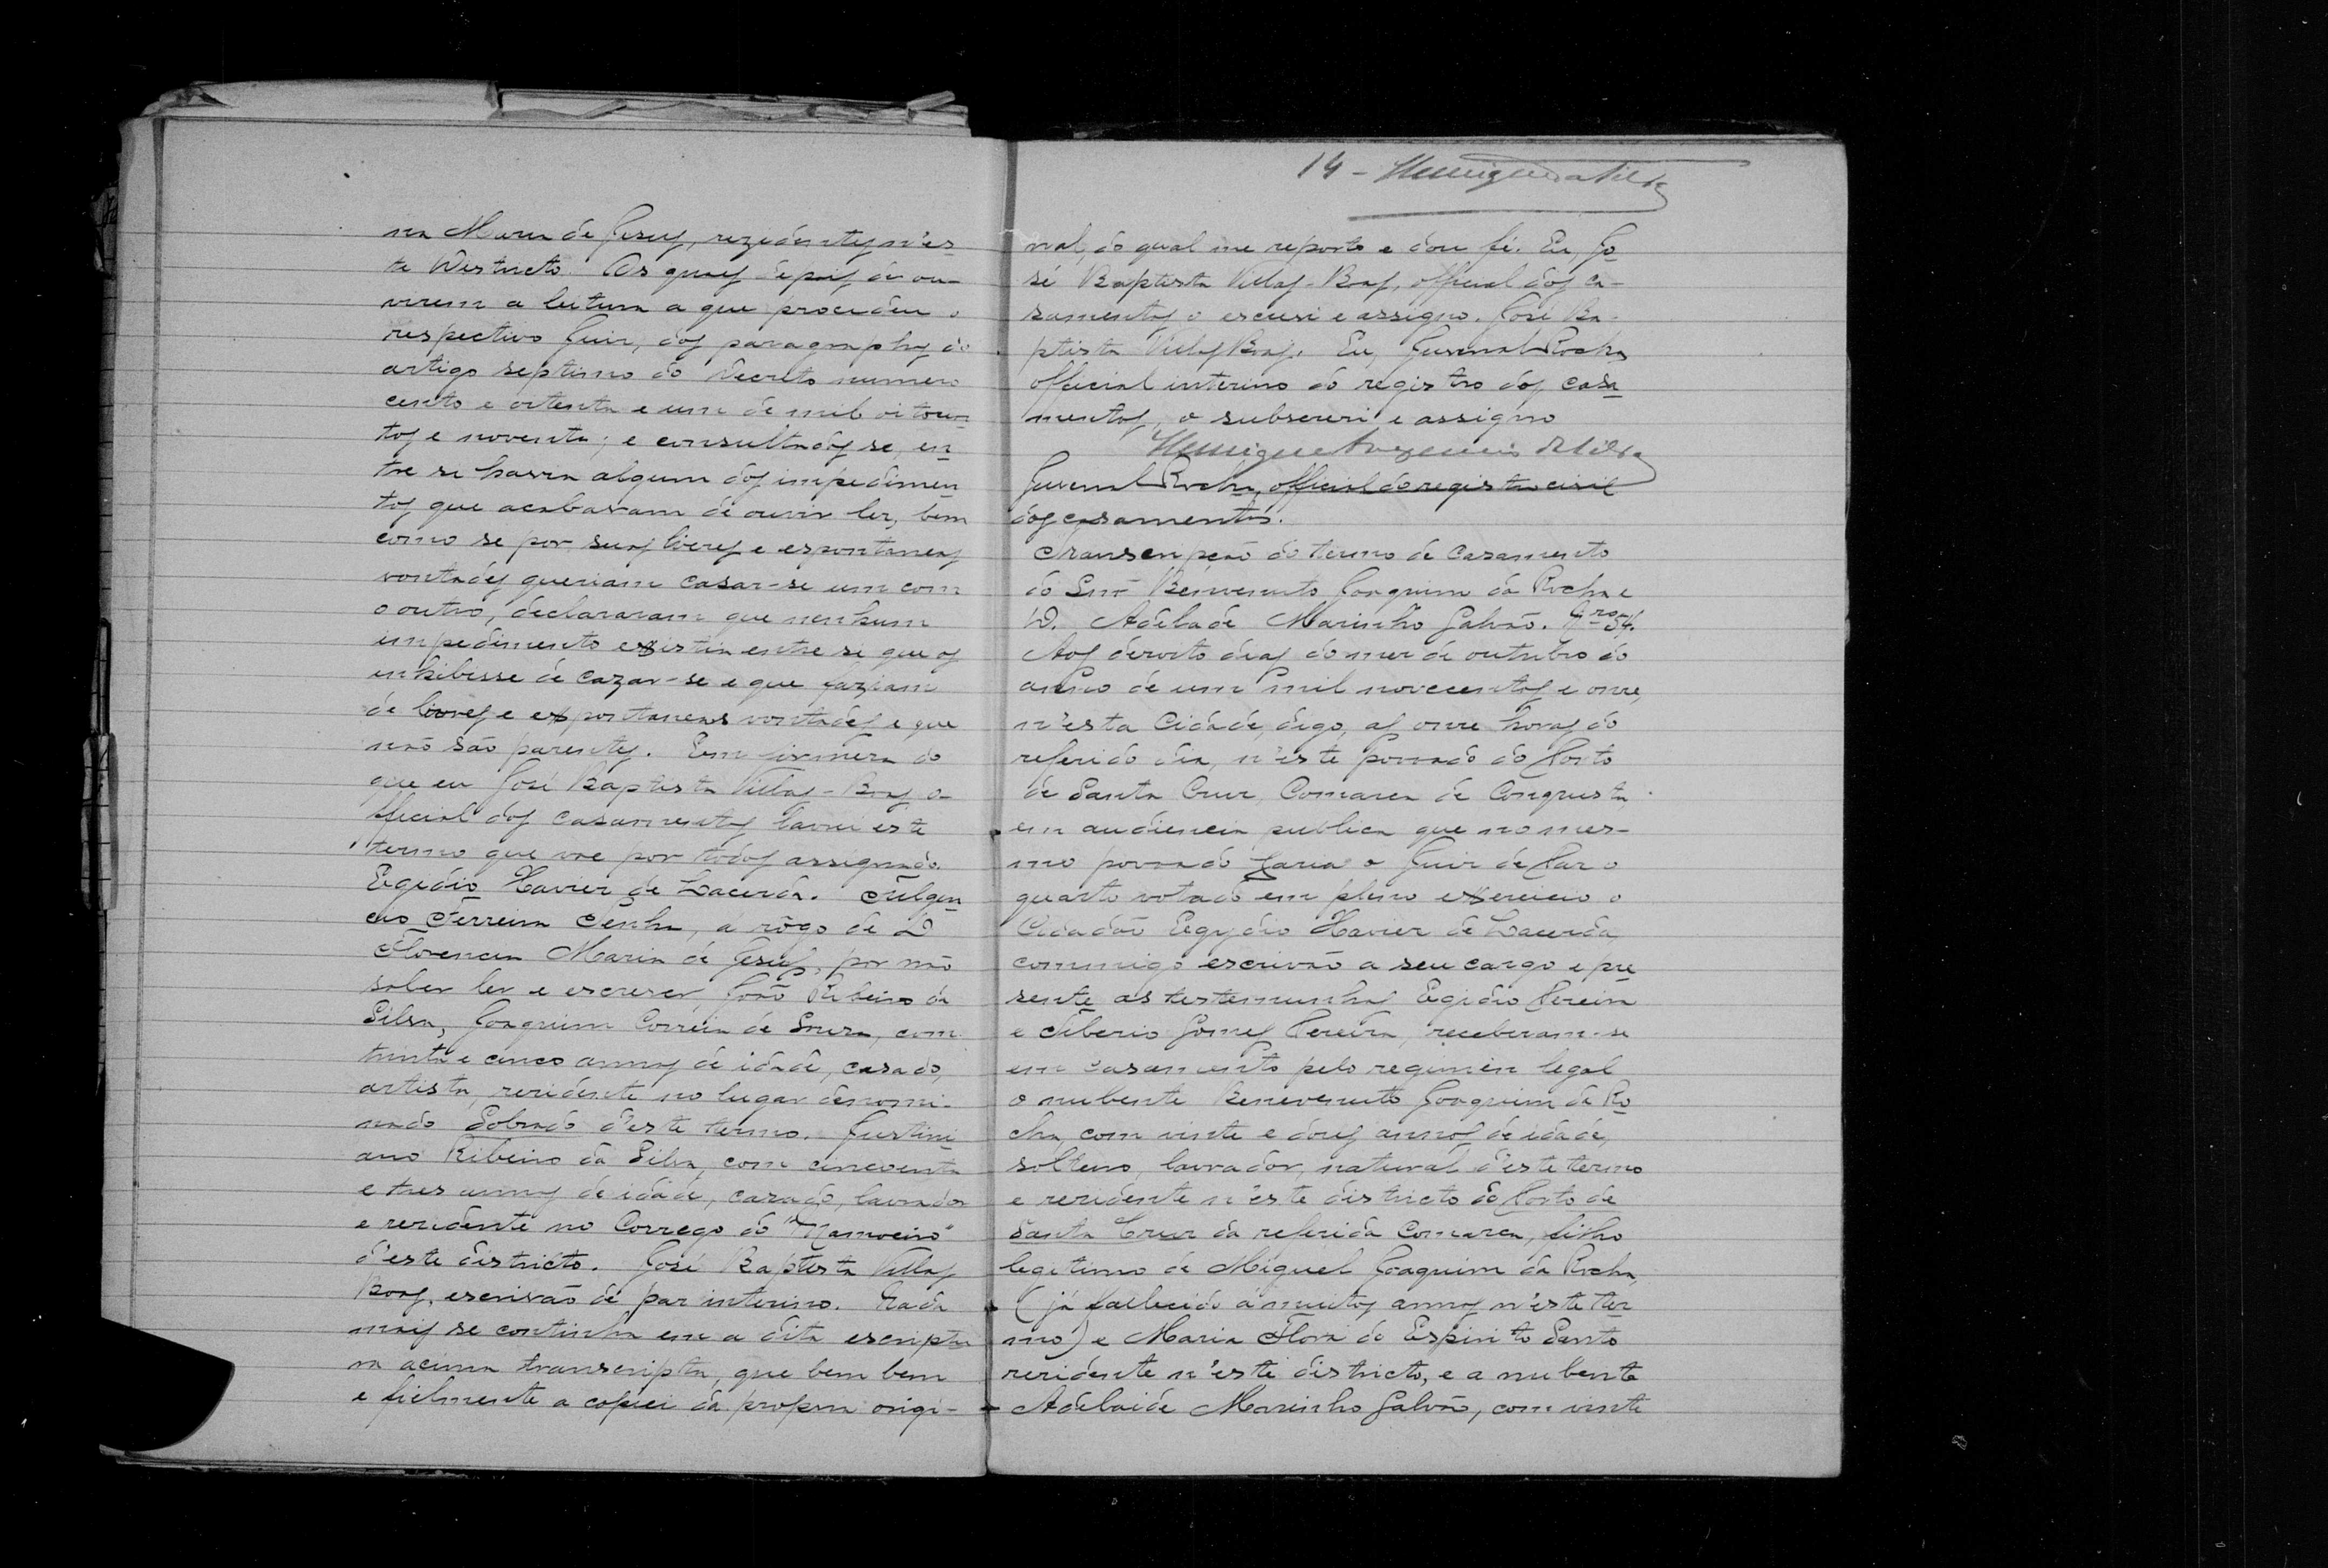 na Maria de Jesus, rezidentes n'es-
te Districto. Os quaes depois de ou-
virem a leitura a que procedeu o
respectivo Juiz, dos paragraphos do
artigo septimo do Decreto numero
cento e oitenta e um de mil oitocen-
tos e noventa; e consultados se, en-
tre si havia algum dos impedimen-
tos que acabavam de ouvir ler, bem
como se por suas livres e espontaneas
vontades queriam casar-se um com
o outro, declararam que nenhum
impedimento existia entre si que os
inhibisse de cazar-se e que faziam
de livres e espontaneas vontades e que
não são parentes. Em firmesa do
que eu José Baptista Villas-Boas, o-
fficial dos casamentos lavrei este
termo que vae por todos assignado.
Egidio Xavier de Lacerda. Fulgen-
cio Ferreira Penha, a rôgo de D
Florencia Maria de Jesus, por não
saber ler e escrever, João Ribeiro da
Silva, Joaquim Corrêia de Souza, com
trinta e cinco annos de idade, casado,
artista, rezidente no lugar denomi-
nado Sobrado d'este termo. Justini-
ano Ribeiro da Silva, com cincoenta
e tres annos de idade, cazado, lavrador
e rezidente no Corrego do "Mamoeiro"
d'este districto. José Baptista Villas
Boas, escrivão de paz interino. Nada
mais se continha em a dita escriptu-
ra acima transcripta, que bem bem
e fielmente a copiei da propria origi-
14 - Henrique da Silva
nal, do qual me reporto e dou fé. Eu, Jo
sé Baptista Villas-Boas, official dos ca-
samentos o escrevi e assigno. José Ba-
ptista Villas Boas. Eu, Juvenal Rocha
official interino do registro dos casa
mentos, o subscrevi e assigno
Henrique da Silva
Juvenal Rocha, official do registro civil
dos casamentos.
Transcripção do termo de casamento
do Snr Benvenuto Joaquim da Rocha e
D. Adelade Marinho Galvão. Nro 54.
Aos dezoito dias do mez de outubro do
anno de um mil novecentos e onze,
n'esta Cidade, digo, as onze horas do
referido dia, n'este povoado do Porto
de Santa Cruz, Comarca de Conquista,
em audiencia publica que no mes-
mo povoado fazia o Juiz de Paz o
quarto votado em pleno exercicio o
Cidadão Egydio Xavier de Lacerda,
commigo escrivão a seu cargo e pre
sente as testemunhas Egidio Pereira
e Tiberio Gomes Pereira, receberam-se
em casamento pelo regimen legal
o nubente Benevenuto Joaquim da Ro
cha, com vinte e dous annos de idade,
solteiro, lavrador, natural d'este termo
e rezidente n'este districto do Porto de
Santa Cruz da referida Comarca, filho
legitimo de Miguel Joaquim da Rocha,
(já fallecido á muitos annos n'este ter
mo) e Maria Flora do Espirito Santo
rezidente n'este districto, e a nubente
Adelaide Marinho Galvão, com vinte